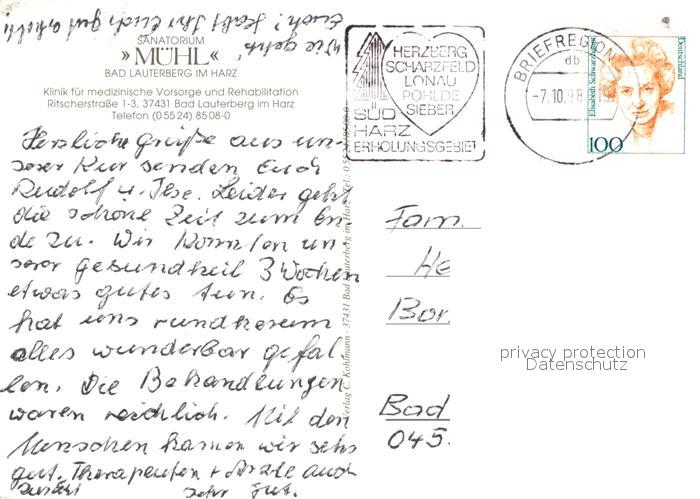 Euch? Habt Ihr Euch gut erholt
Wie geht's
SANATORIUM
» MÜHL «
BAD LAUTERBERG IM HARZ
Klinik für medizinische Vorsorge und Rehabilitation
Ritscherstraße 1-3, 37431 Bad Lauterberg im Harz
Telefon (0 55 24) 85 08-0
Herzliche Grüße aus un-
serer Kur senden Euch
Rudolf u. Ilse. Leider geht
die schöne Zeit zum En-
de zu. Wir konnten un
serer Gesundheit 3 Wochen
etwas gutes tun. Es
hat uns rundherum
alles wunderbar gefal-
len. Die Behandlungen
waren reichlich. Mit den
Menschen kamen wir sehr
gut. Therapeuten + Ärzte auch
sehr gut.
Verlag C. Kohlmann - 37431 Bad Lauterberg im Harz
HERZBERG
SCHARZFELD
LONAU
PÖHLDE
SIEBER
SÜD
HARZ
ERHOLUNGSGEBIET
BRIEFREGION
db
-7.10.98
Elisabeth Schwarzhaupt
Deutschland
100
Fam.
He
Bor
Bad
045.
privacy protection
Datenschutz